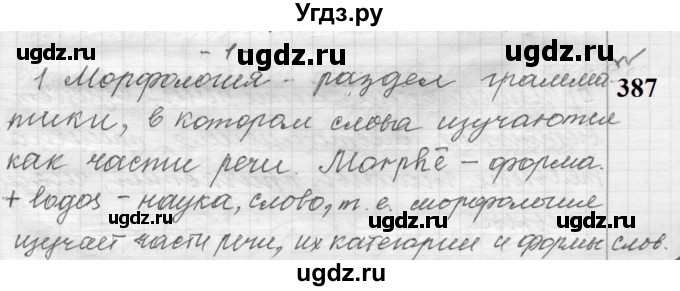 Угдз.ру
- 1
ugdz.ru ugdz.ru
1 Морфология - раздел грамма
387
тики, в котором слова изучаются
как части речи. Morphē - форма.
+ logos - наука, слово, т. е. морфология
изучает части речи, их категории и формы слов.
ugdz.ru ugdz.ru
ugdz.ru ugdz.ru